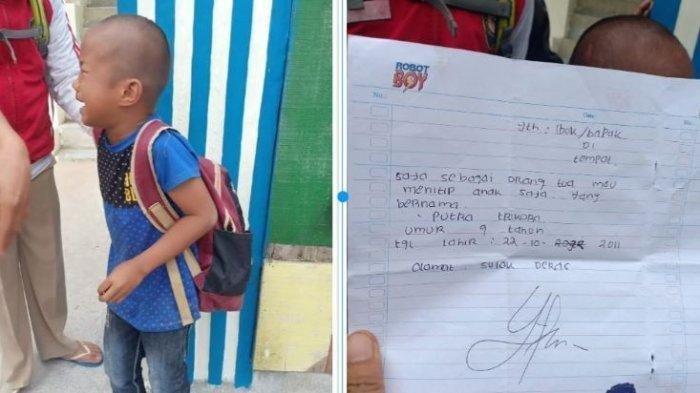 ROBOT
BOY
No.:
Date:
yth : Ibuk/bapak
DI
tempat.
saya sebagai orang tua mau
menitip anak saya yang
bernama.
PUTRA TRIKORA
umur 9 tahun
tgl lahir : 22-10- 2011
alamat. SUTOK DERAS